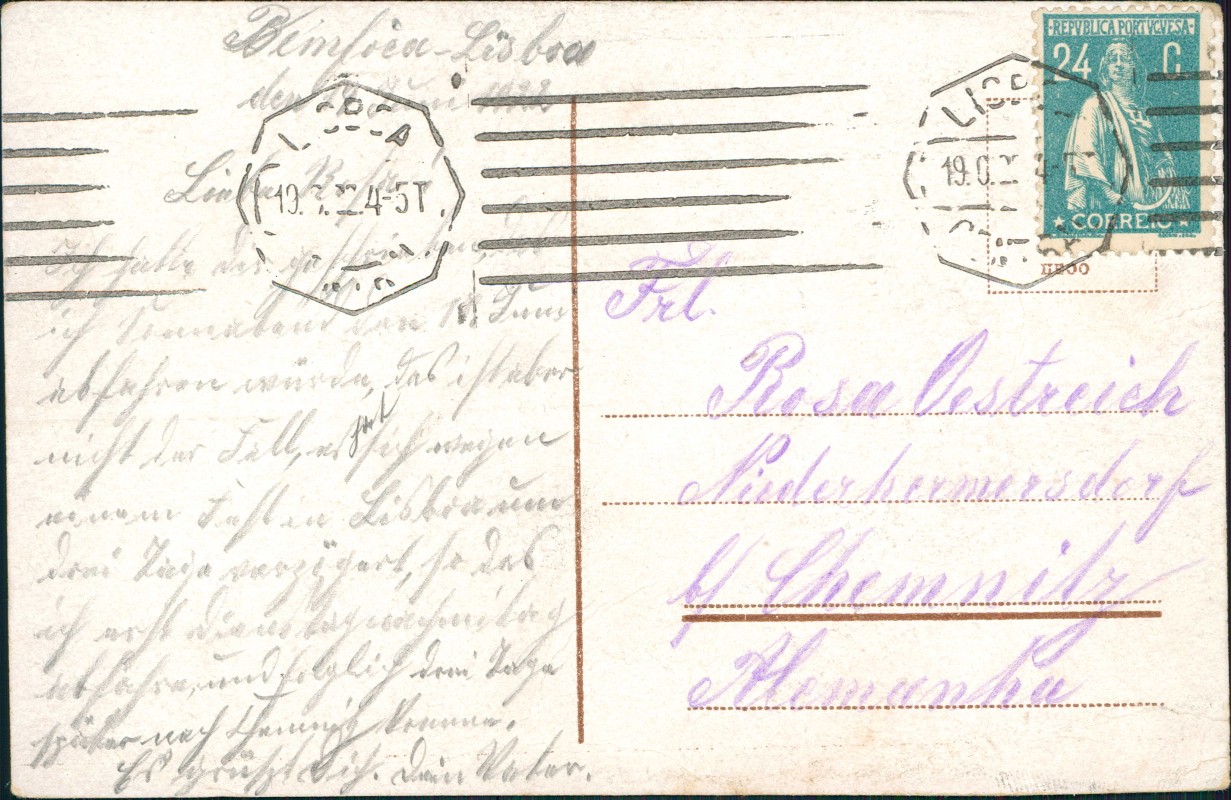 Bemfica-Lisboa
den Juni 1922
Liebe Rosa
Ich hatte dir geschrieben, das
ich Sonnabend den 18 Juni
abfahren würde, das ist aber
nicht der Fall, es hat sich wegen
einem Fest in Lisboa um
drei Tage verzögert, so das
ich erst
abfahre, und folglich drei Tage
später nach Chemnitz komme.
Es grüßt dich. Dein Vater.
REPUBLICA PORTUGUESA
24 C.
CORREIO
4-5T
LISB
19.
Frl.
Rosa Oestreich
Niederhermersdorf
b/ Chemnitz
Alemanha